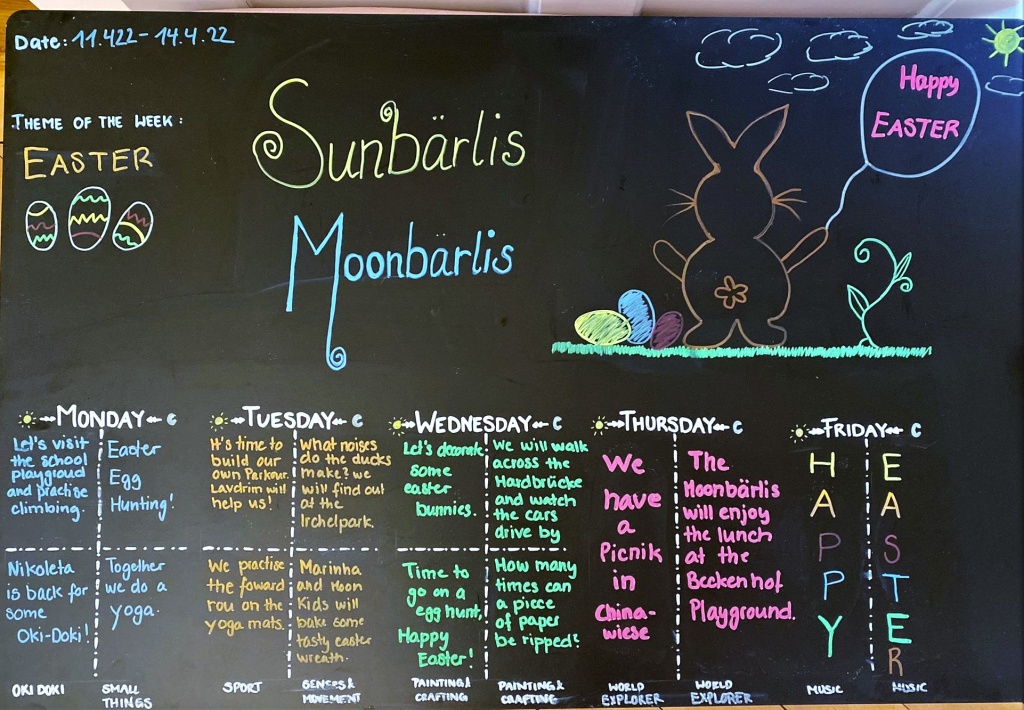 Date: 11.422 - 14.4.22
THEME OF THE WEEK:
EASTER
Sunbärlis
Moonbärlis
Happy
EASTER
MONDAY
Let's visit
the school
playground
and practise
climbing.
Easter
Egg
Hunting!
Nikoleta
is back for
some
Oki-Doki!
Together
we do a
yoga.
OKI DOKI
SMALL
THINGS
TUESDAY
It's time to
build our
own Parkour.
Lavdrim will
help us!
What noises
do the ducks
make? We
will find out
at the
Irchelpark.
We practise
the foward
rou on the
yoga mats.
Marinha
and Moon
Kids will
bake some
tasty easter
wreath.
SPORT
&
MOVEMENT
WEDNESDAY
Let's decorate
some
easter
bunnies.
We will walk
across the
Hardbrücke
and watch
the cars
drive by
Time to
go on a
egg hunt,
Happy
Easter!
How many
times can
a piece
of paper
be ripped?
PAINTING &
CRAFTING
PAINTING &
CRAFTING
THURSDAY
We
have
a
Picnik
in
China-
wiese
The
Moonbärlis
will enjoy
the lunch
at the
Beckenhof
Playground.
WORLD
EXPLORER
WORLD
EXPLORER
FRIDAY
H
A
P
P
Y
E
A
S
T
E
R
MUSIC
MUSIC